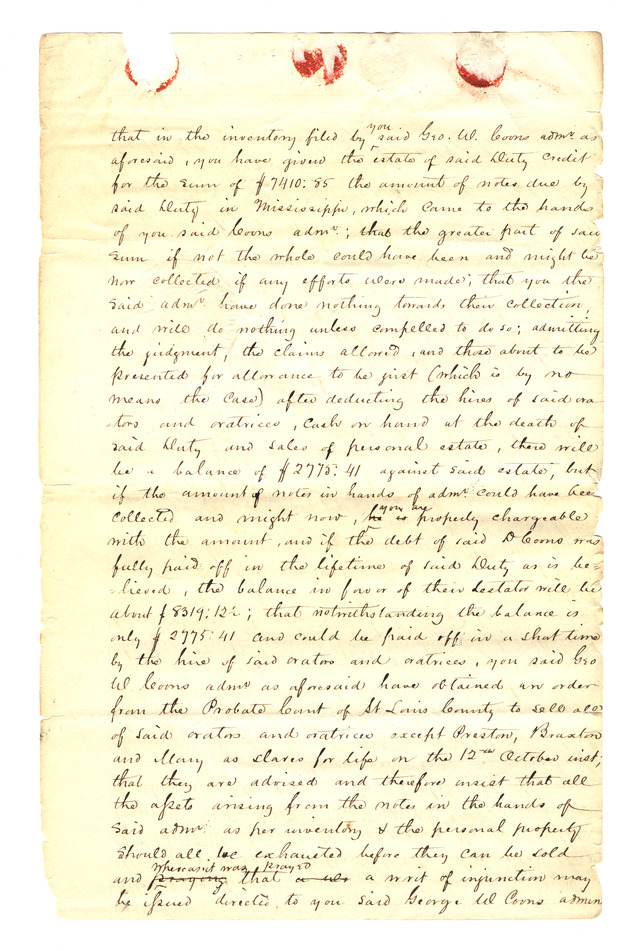 that in the inventory filed by you said Geo. W. Coons admr. as
aforesaid, you have given the estate of said Duty Credit
for the sum of $7410:85 the amount of notes due by
said Duty in Mississippi, which came to the hands
of you said Coons admr.; that the greater part of said
sum if not the whole could have been and might be
now collected if any efforts were made; that you the
said admr. have done nothing towards their collection,
and will do nothing unless compelled to do so; admitting
the judgment, the claims allowed, and those about to be
presented for allowance to be just (which is by no
means the case) after deducting the hires of said ora
tors and oratrices, Cash on hand at the death of
said Duty and sales of personal estate, there will
be a balance of $2775:41 against said estate, but
if the amount of notes in hands of admr. could have been
collected and might now, he is you are properly chargeable
with the amount, and if the debt of said D Coons was
fully paid off in the lifetime of said Duty as is be-
-lieved, the balance in favor of their testator will be
about $8319:12½; that notwithstanding the balance is
only $2775:41 and could be paid off in a short time
by the hire of said orators and oratrices, you said Geo
W Coons admr as aforesaid have obtained an order
from the Probate Court of St Louis County to sell all
of said orators and oratrices except Preston, Braxton
and Mary as slaves for life on the 12th October inst;
that they are advised and therefore insist that all
the assets arising from the notes in the hands of
said admr. as per inventory & the personal property
should all be exhausted before they can be sold
and praying whereas it was prayed that a wr a writ of injunction may
be issued directed to you said George W Coons admin